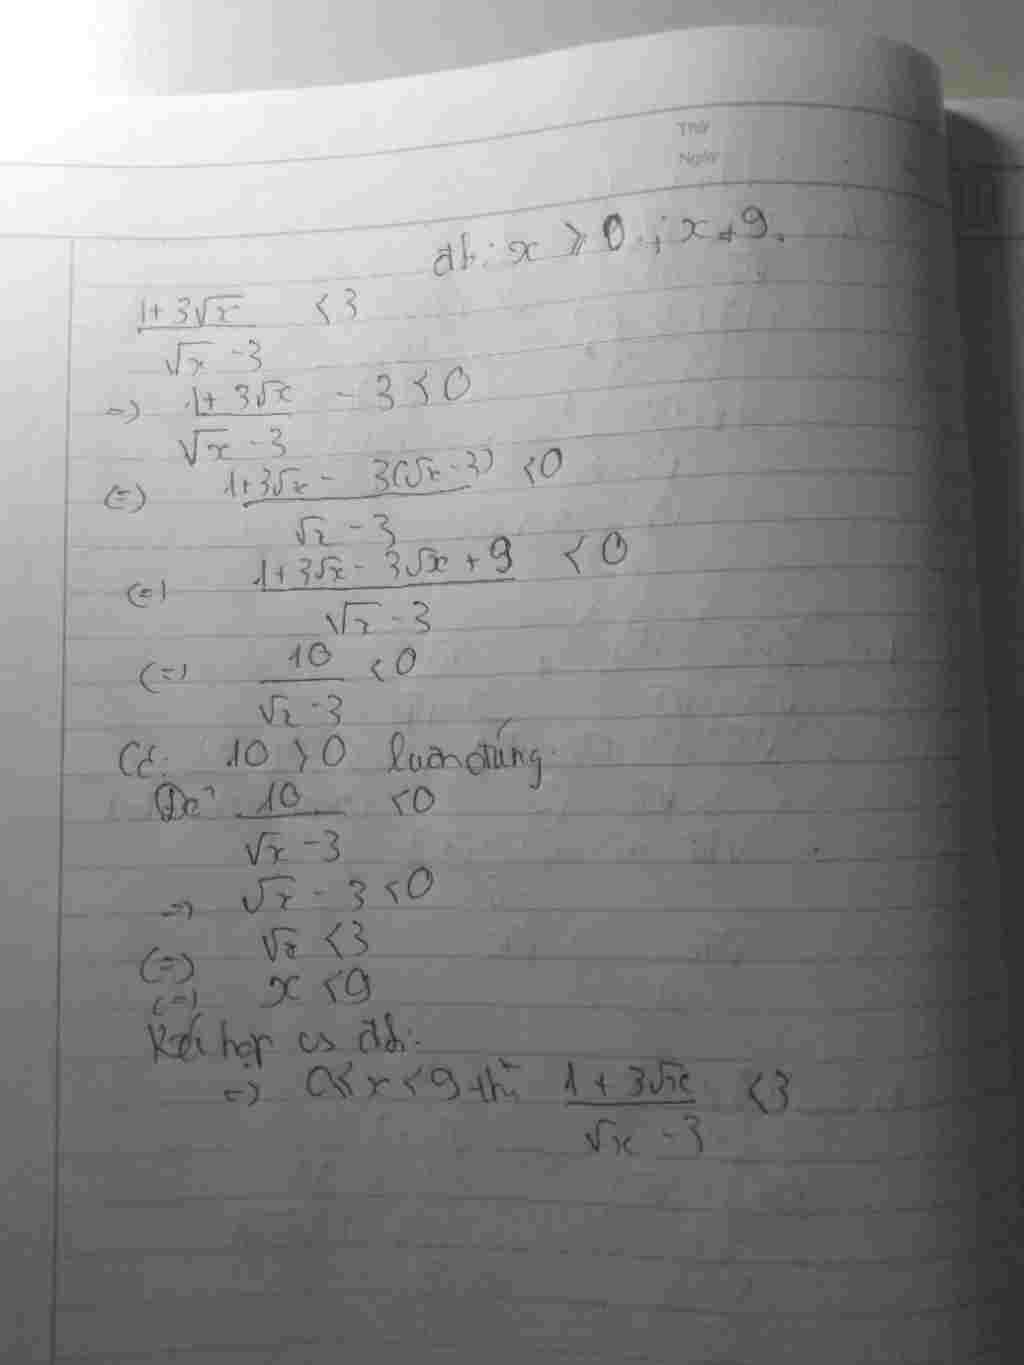 Thứ
Ngày
đk: x ≥ 0 ; x ≠ 9.
\frac{1+3\sqrt{x}}{\sqrt{x}-3} < 3
=> \frac{1+3\sqrt{x}}{\sqrt{x}-3} - 3 < 0
(=) \frac{1+3\sqrt{x} - 3(\sqrt{x}-3)}{\sqrt{x}-3} < 0
(=) \frac{1+3\sqrt{x}-3\sqrt{x}+9}{\sqrt{x}-3} < 0
(=) \frac{10}{\sqrt{x}-3} < 0
Có: 10 > 0 luôn đúng.
Để \frac{10}{\sqrt{x}-3} < 0
=> \sqrt{x} - 3 < 0
(=) \sqrt{x} < 3
(=) x < 9
Kết hợp đk:
=> 0 ≤ x < 9 thì \frac{1+3\sqrt{x}}{\sqrt{x}-3} < 3